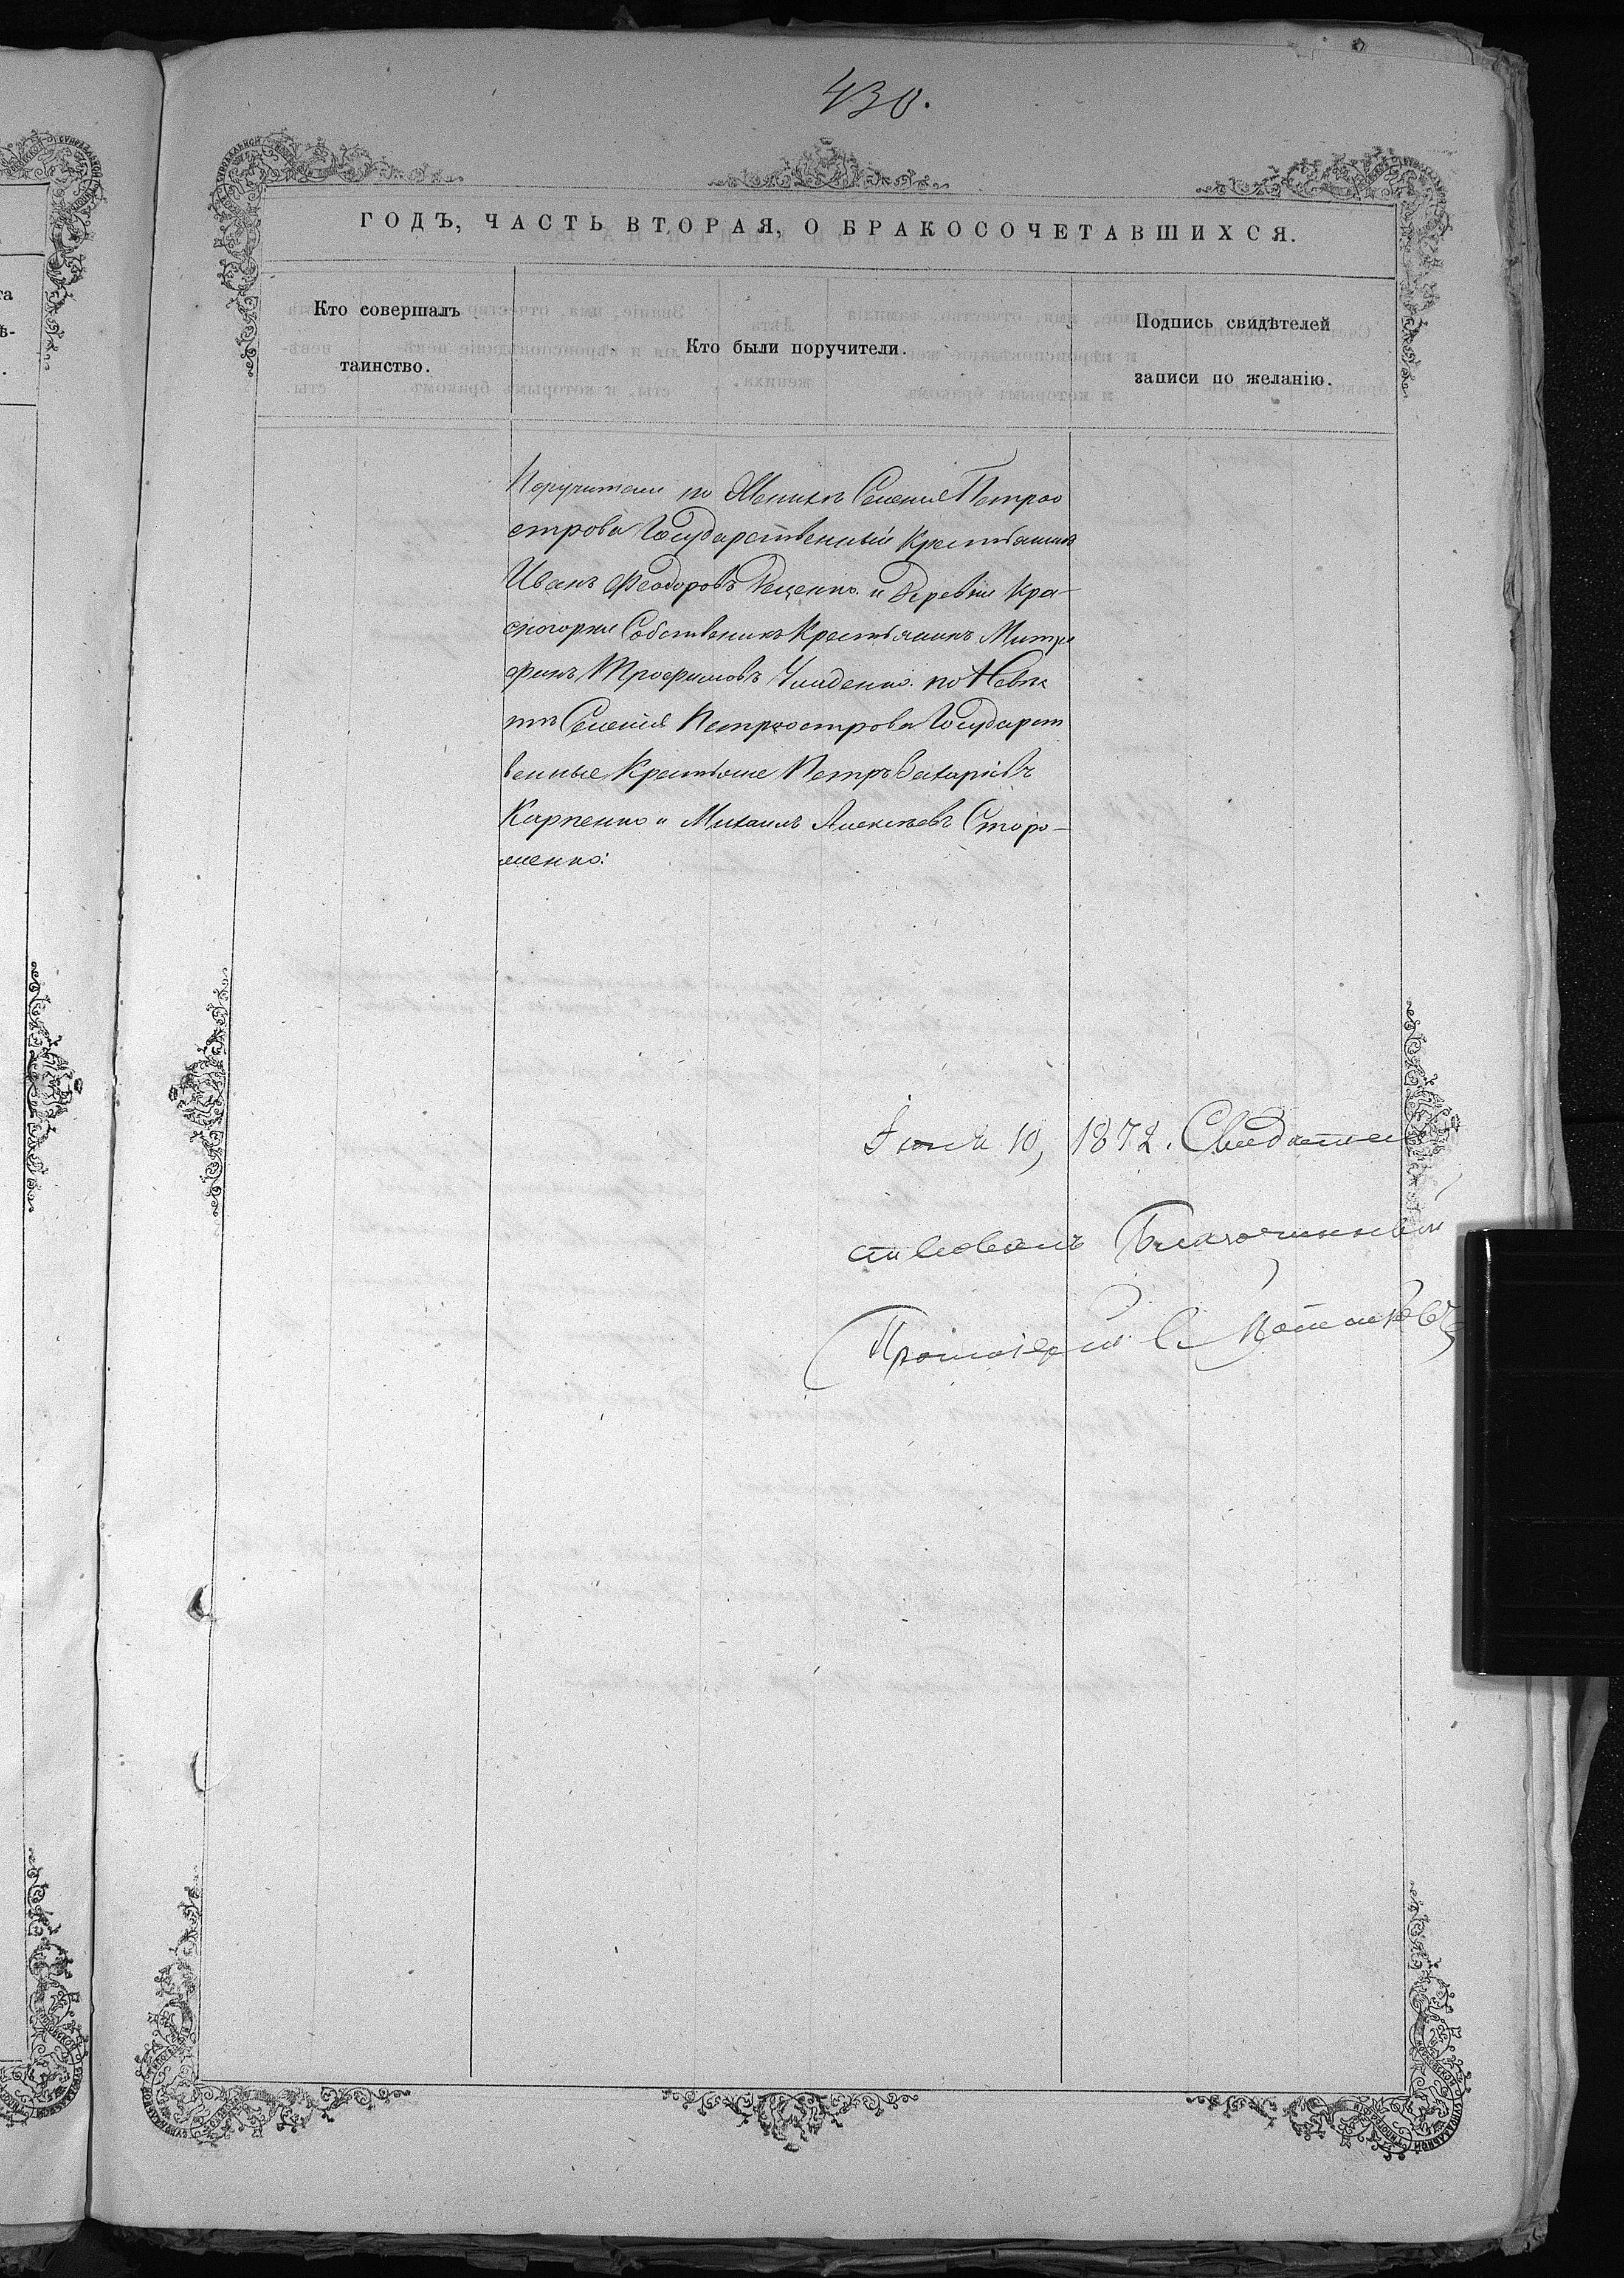 430.
ГОДЪ, ЧАСТЬ ВТОРАЯ, О БРАКОСОЧЕТАВШИХСЯ.
Кто совершалъ
таинство.
Кто были поручители.
Подпись свидѣтелей
записи по желанію.
Поручители по Женихѣ Селенія Петроо
строва Государственный Крестьянинъ
Иванъ Феодоровъ и Деревни Кра-
сногорки Собственникъ Крестьянинъ Митро
фанъ Трофимовъ по Невѣс
тѣ Селенія Петроострова Государст
венные Крестьяне Петръ Захаріевъ
Карпенко и Михаилъ Алексѣевъ Сторо-
женко.
10, 1872. Свидѣтель
ствовалъ Благочинный
Протоіерей